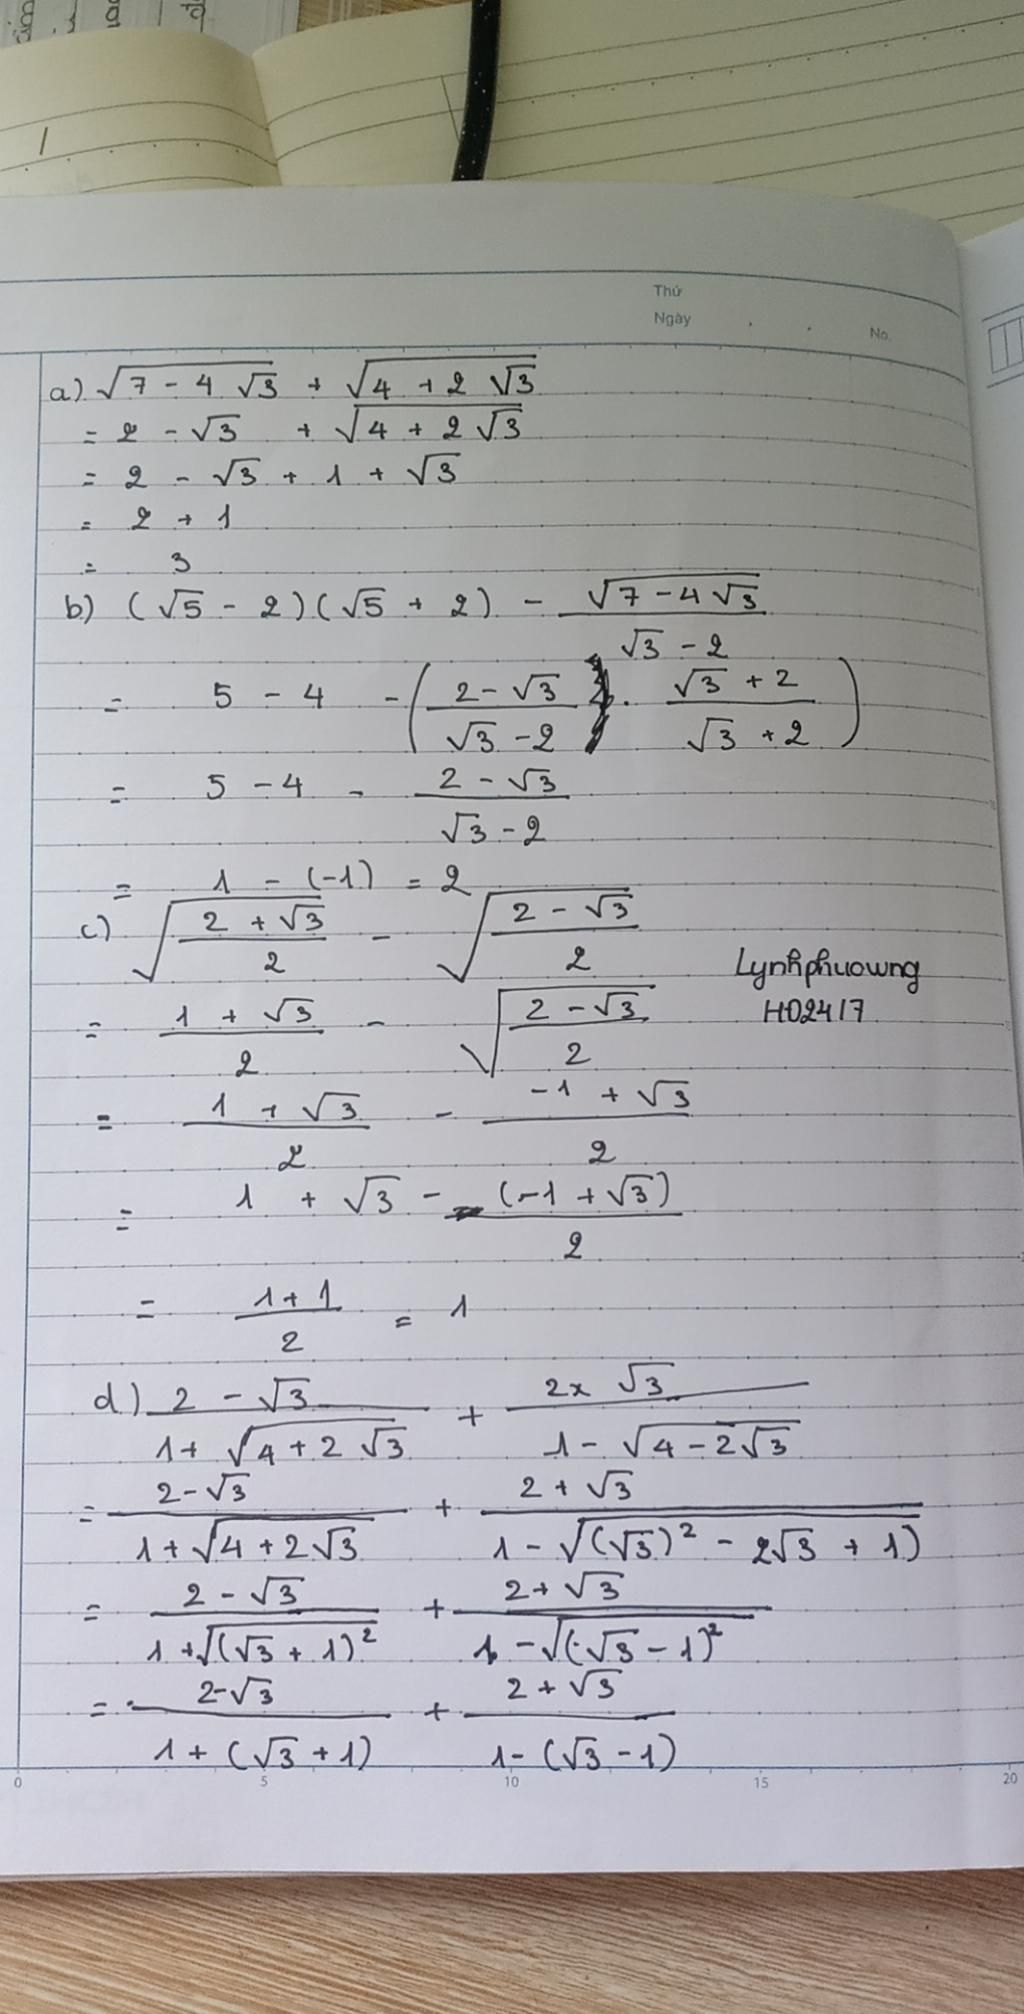 Thứ
Ngày . . No.
a) √(7 - 4√3) + √(4 + 2√3)
= 2 - √3 + √(4 + 2√3)
= 2 - √3 + 1 + √3
= 2 + 1
= 3
b) (√5 - 2)(√5 + 2) - √(7 - 4√3) / (√3 - 2)
= 5 - 4 - ((2 - √3)/(√3 - 2) . (√3 + 2)/(√3 + 2))
= 5 - 4 - (2 - √3)/(√3 - 2)
= 1 - (-1) = 2
c) √((2 + √3)/2) - √((2 - √3)/2)
= (1 + √3)/2 - √((2 - √3)/2)
Lynhphuowng
H02417
= (1 + √3)/2 - (-1 + √3)/2
= (1 + √3 - (-1 + √3))/2
= (1 + 1)/2 = 1
d) (2 - √3)/(1 + √(4 + 2√3)) + (2x √3)/(1 - √(4 - 2√3))
= (2 - √3)/(1 + √(4 + 2√3)) + (2 + √3)/(1 - √((√3)² - 2√3 + 1))
= (2 - √3)/(1 + √((√3 + 1)²)) + (2 + √3)/(1 - √((√3 - 1)²))
= (2 - √3)/(1 + (√3 + 1)) + (2 + √3)/(1 - (√3 - 1))
0 5 10 15 20